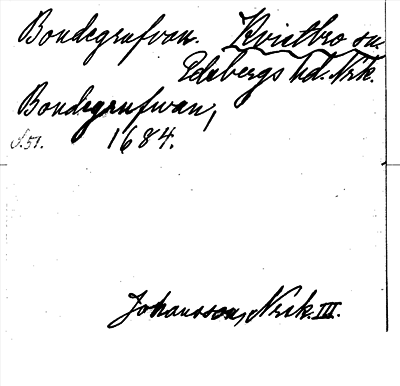 Bondegrufvan. Kvistbro sn.
Edsbergs hd. Nrk.
Bondegrufwan,
S. 51. 1684.
Johansson, Nerk. III.